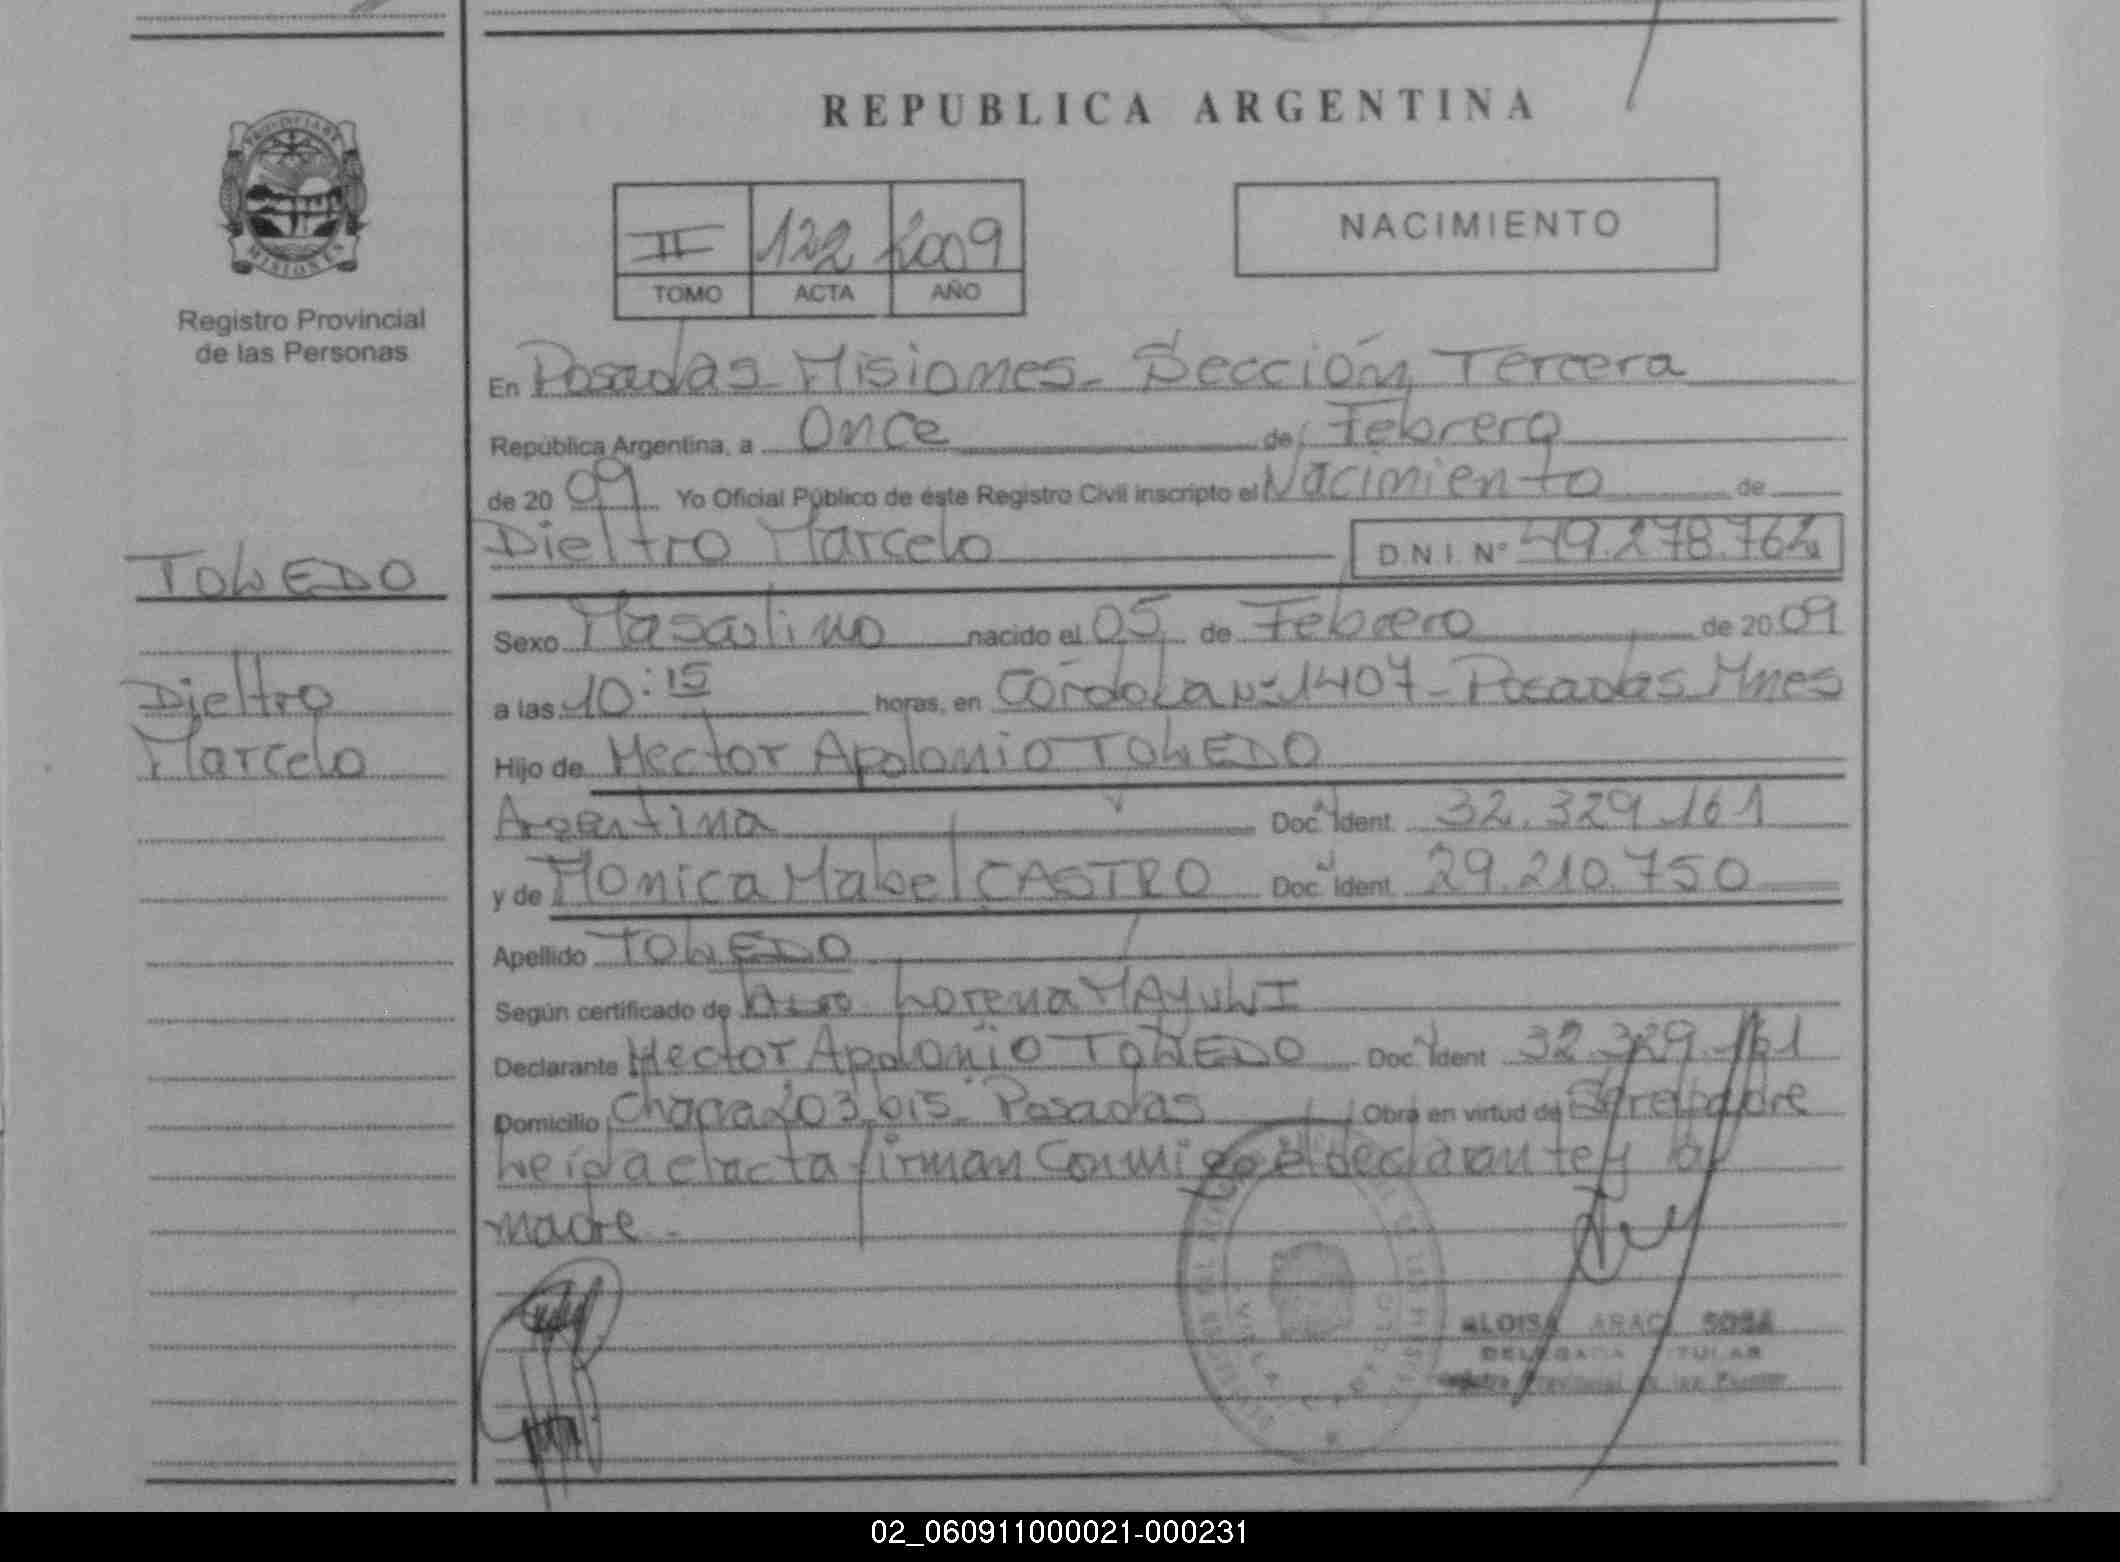 REPUBLICA ARGENTINA
PROVINCIA DE
MISIONES
Registro Provincial
de las Personas
II 122 2009
TOMO ACTA AÑO
NACIMIENTO
En Posadas Misiones. Sección Tercera
República Argentina, a Once de Febrero
de 2009 Yo Oficial Público de éste Registro Civil inscripto el Nacimiento de
Dieltro Marcelo D.N.I. Nº 49.278.762
TOLEDO
Dieltro
Marcelo
Sexo Masculino nacido el 05 de Febrero de 2009
a las 10:15 horas, en Córdoba Nº 1407 - Posadas Mnes
Hijo de Hector Apolonio TOLEDO
Argentina Doc. Ident. 32.329.161
y de Monica Mabel CASTRO Doc. Ident. 29.210.750
Apellido TOLEDO
Según certificado de Lorena MAYULI
Declarante Hector Apolonio TOLEDO Doc. Ident 32.329.161
Domicilio Chacra 203 bis. Posadas Obra en virtud de Ser el padre
Leída el acta firman conmigo el declarante y la
madre.-
ARACI SOSA
DELEGADA TITULAR
02_060911000021-000231